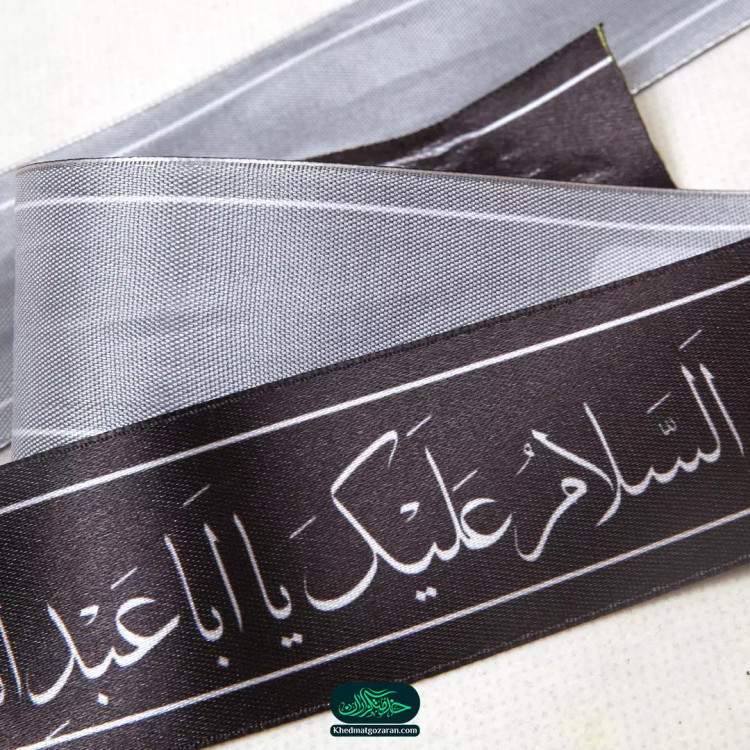 اَلسَّلامُ عَلَیْکَ یا اَبا عَبْدِ
خدمتگزاران
Khedmatgozaran.com